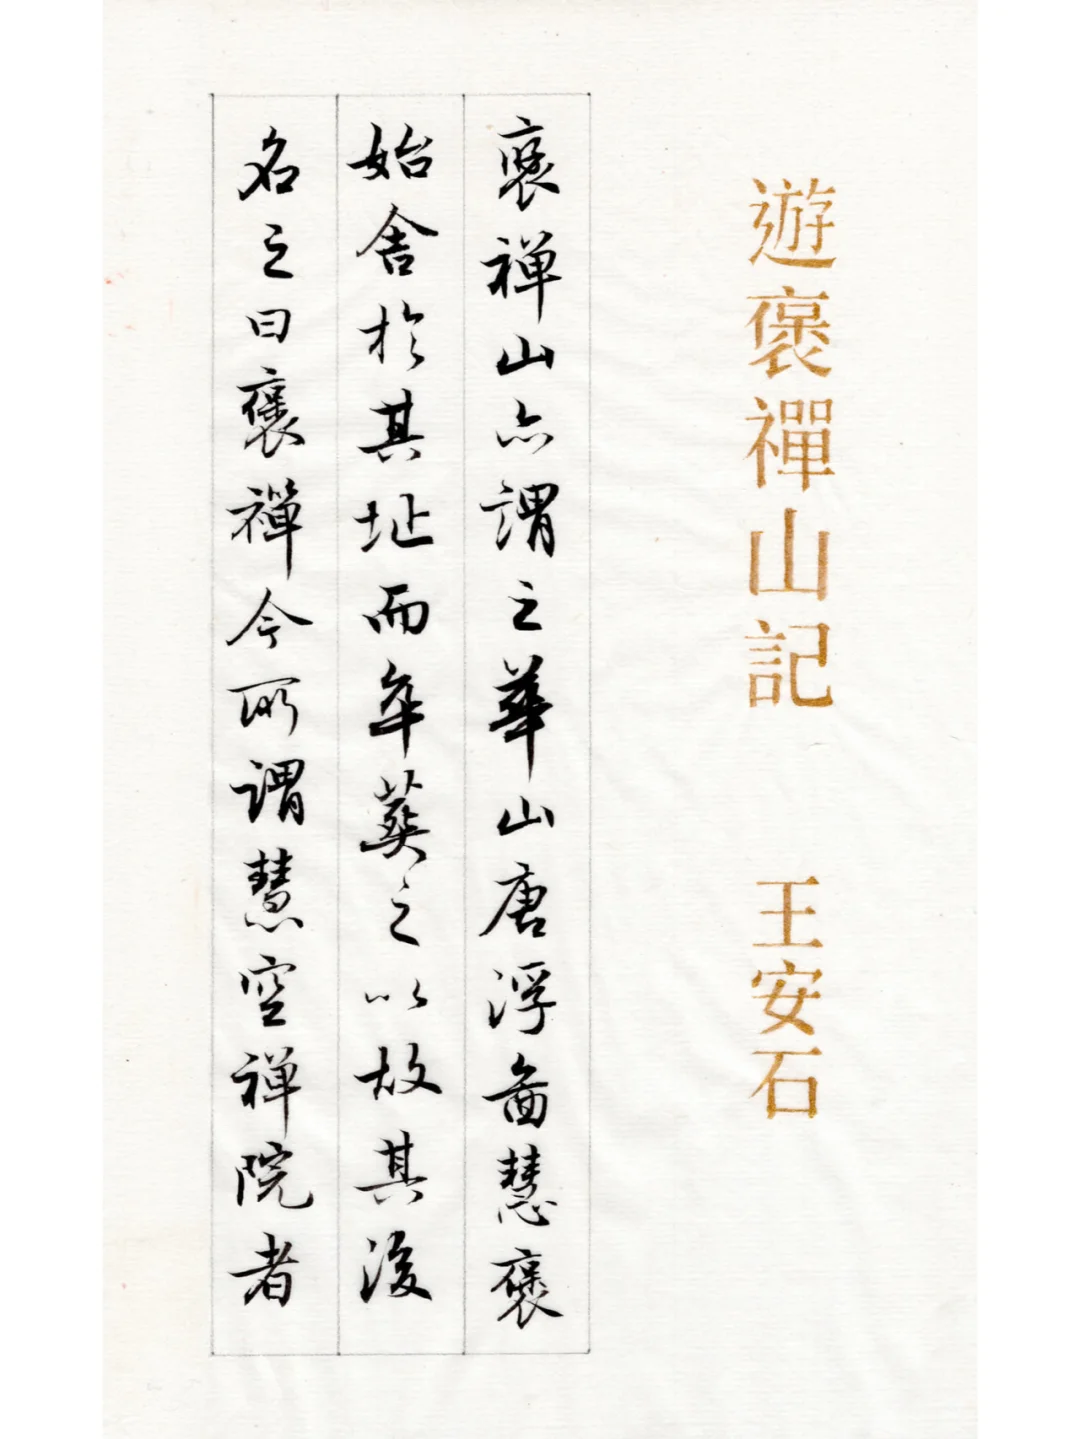 遊褒禪山記
王安石
褒禅山亦謂之華山唐浮啚慧褒
始舍於其址而卒葬之以故其後
名之曰褒禪今所謂慧空禅院者